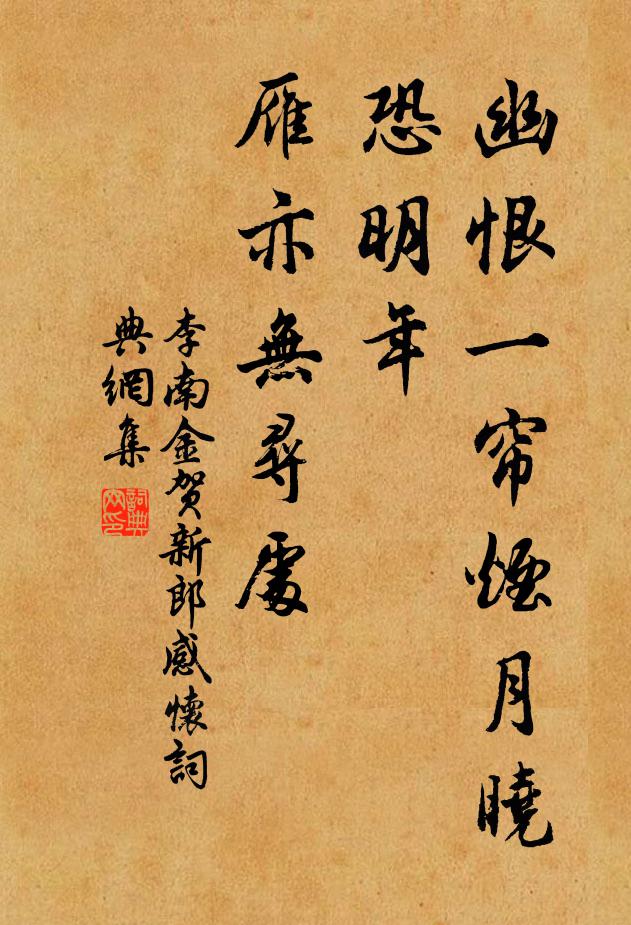 幽恨一帘煙月曉
恐明年
雁亦無尋處
李南金賀新郎感懷詞
典網集
詞典網印